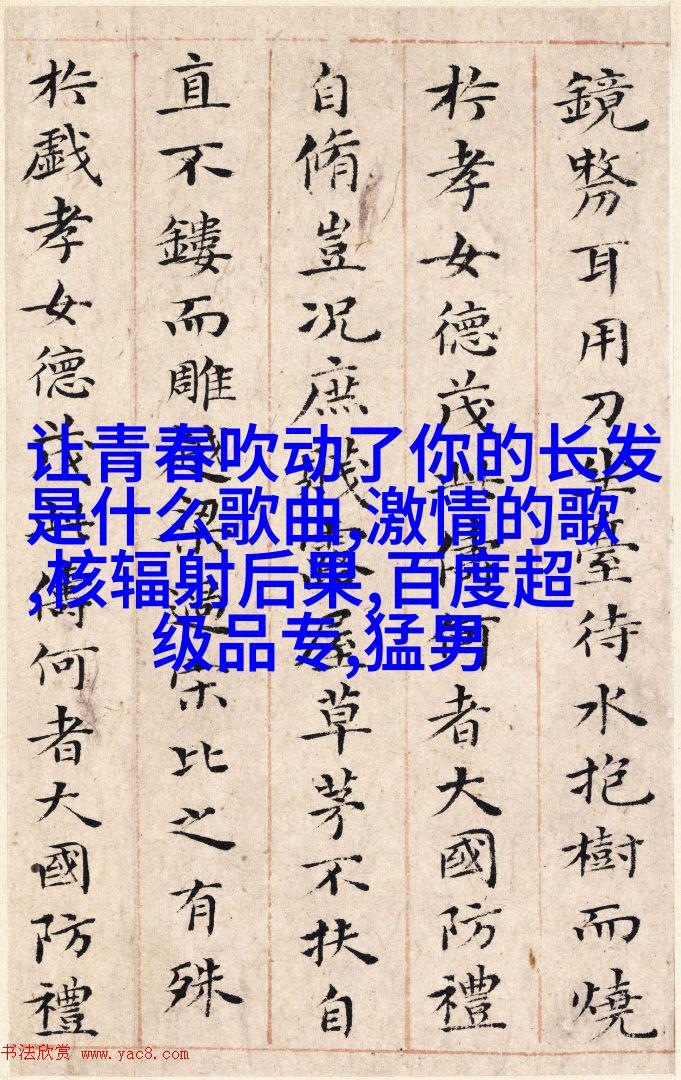 鏡剺耳用刀坐臺待水抱樹而燒
扵孝女德茂此儔何者大國防禮
自脩豈況庶賤露屋草茅不扶自
直不鏤而雕越梁過宋比之有殊
扵戲孝女德茂此儔何者大國防禮
让青春吹动了你的长发
是什么歌曲,激情的歌
,核辐射后果,百度超
级品专,猛男
书法欣赏 www.yac8.com